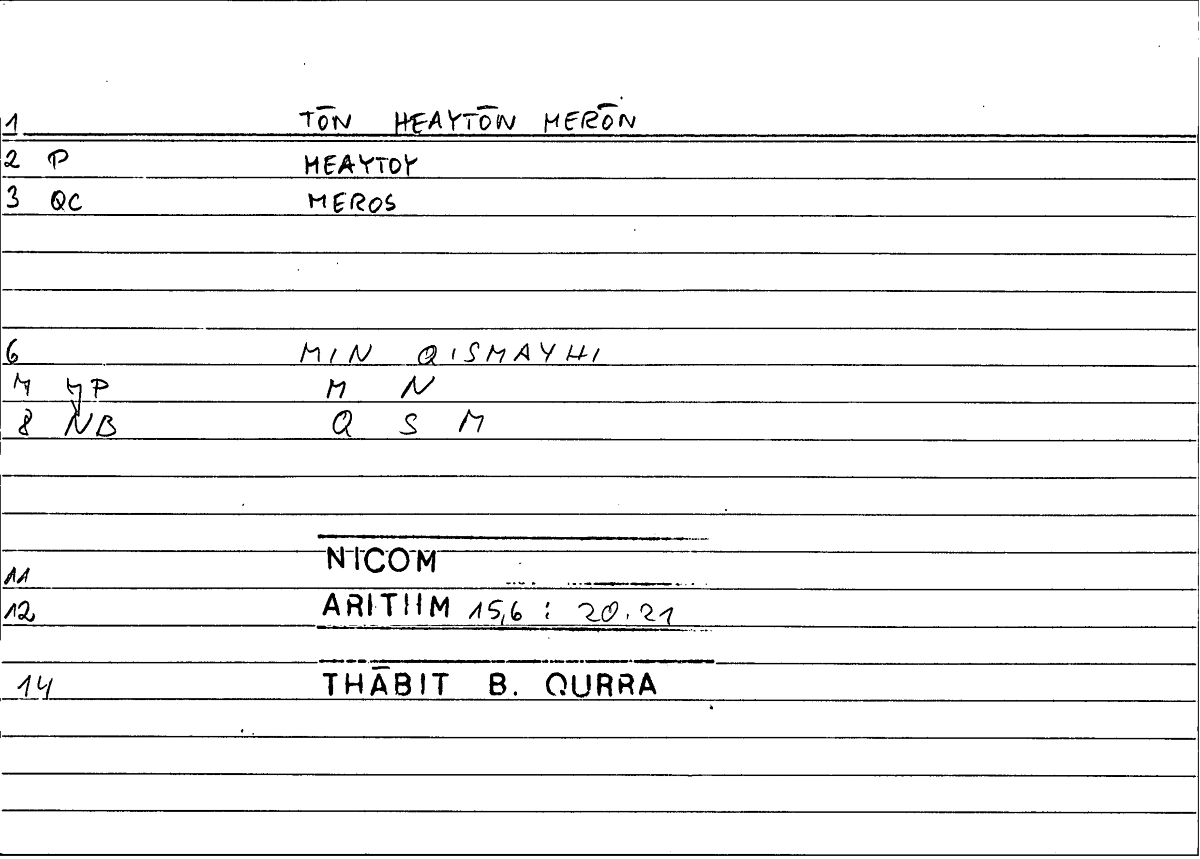 1 TŌN HEAYTŌN MERŌN
2 P HEAYTOY
3 QC MEROS
6 MIN QISMAYHI
7 YP M N
8 NB Q S M
11 NICOM
12 ARITHM 15,6 : 20.21
14 THĀBIT B. QURRA